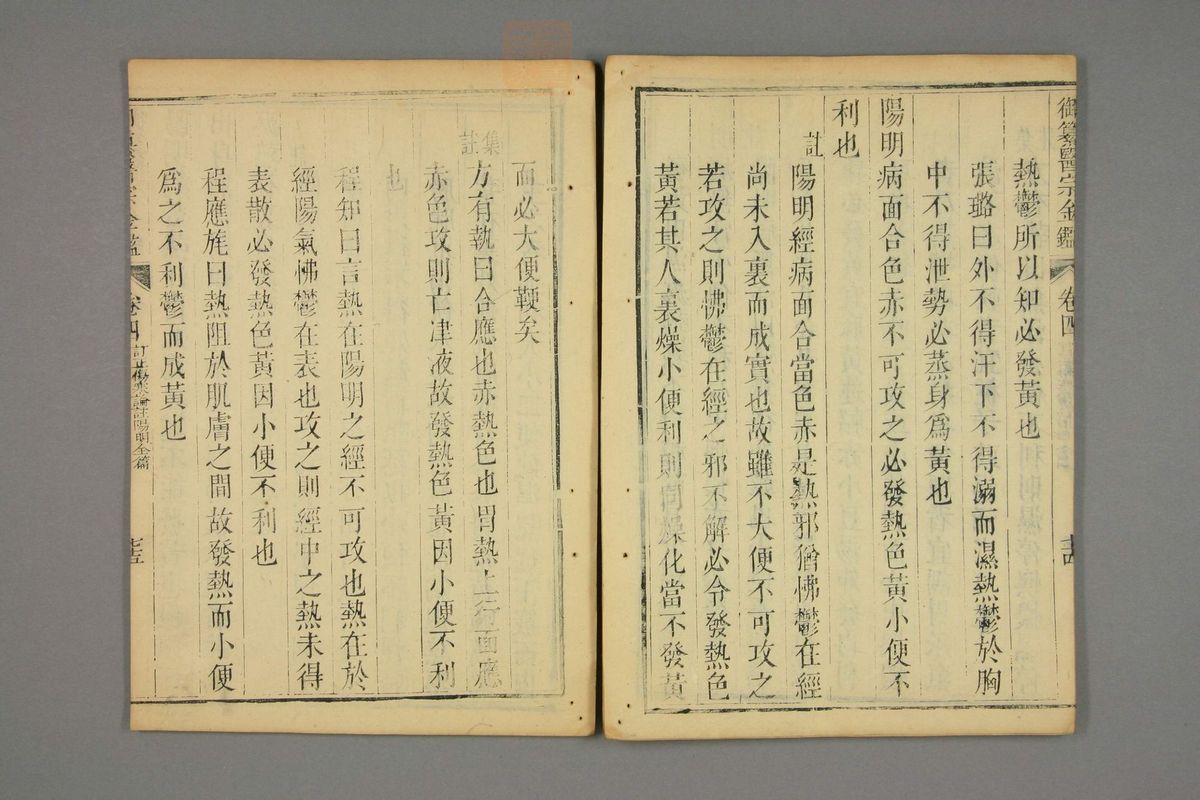 御纂醫宗金鑑 卷四
熱鬱所以知必發黃也
張璐曰外不得汗下不得溺而濕熱鬱於胸
中不得泄勢必蒸身爲黃也
陽明病面合色赤不可攻之必發熱色黃小便不
利也
註 陽明經病面合當色赤是熱邪猶怫鬱在經
尚未入裏而成實也故雖不大便不可攻之
若攻之則怫鬱在經之邪不解必令發熱色
黃若其人裏燥小便利則同燥化當不發黃
而必大便鞕矣
集註 方有執曰合應也赤熱色也胃熱上行面應
赤色攻則亡津液故發熱色黃因小便不利
也
程知曰言熱在陽明之經不可攻也熱在於
經陽氣怫鬱在表也攻之則經中之熱未得
表散必發熱色黃因小便不利也
程應旄曰熱阻於肌膚之間故發熱而小便
爲之不利鬱而成黃也
宗金鑑 卷四 訂正傷寒論註陽明全篇